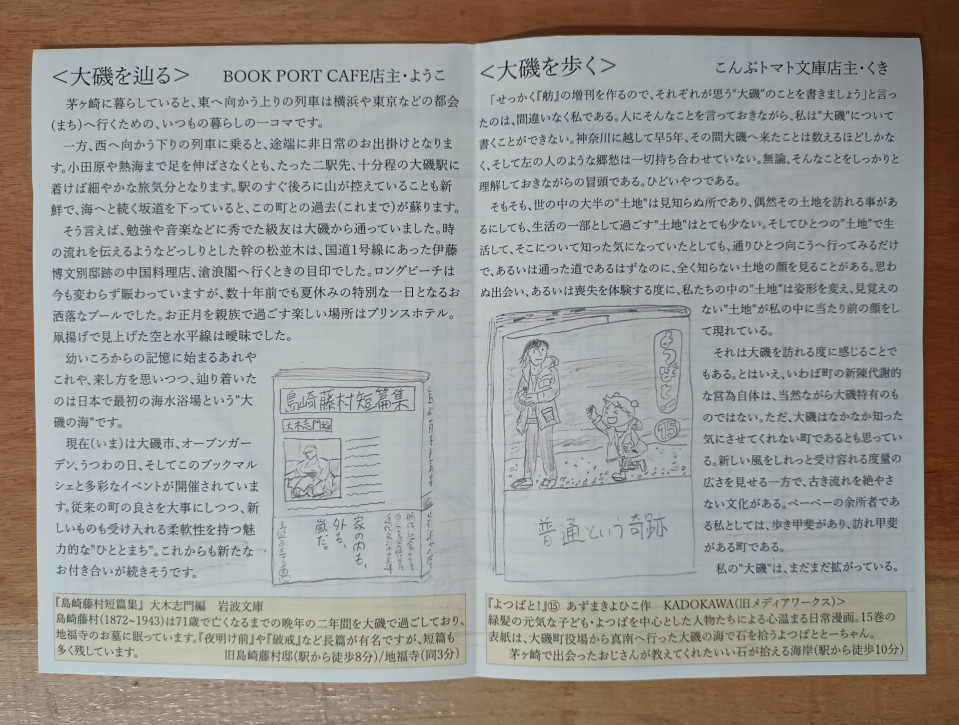 ＜大磯を辿る＞　BOOK PORT CAFE店主・ようこ
茅ヶ崎に暮らしていると、東へ向かう上りの列車は横浜や東京などの都会
(まち)へ行くための、いつもの暮らしの一コマです。
一方、西へ向かう下りの列車に乗ると、途端に非日常のお出掛けとなりま
す。小田原や熱海まで足を伸ばさなくとも、たった二駅先、十分程の大磯駅に
着けば細やかな旅気分となります。駅のすぐ後ろに山が控えていることも新
鮮で、海へと続く坂道を下っていると、この町との過去(これまで)が蘇ります。
そう言えば、勉強や音楽などに秀でた級友は大磯から通っていました。時
の流れを伝えるようなどっしりとした幹の松並木は、国道1号線にあった伊藤
博文別邸跡の中国料理店、滄浪閣へ行くときの目印でした。ロングビーチは
今も変わらず賑わっていますが、数十年前でも夏休みの特別な一日となるお
洒落なプールでした。お正月を親族で過ごす楽しい場所はプリンスホテル。
凧揚げで見上げた空と水平線は曖昧でした。
幼いころからの記憶に始まるあれや
これや、来し方を思いつつ、辿り着いた
のは日本で最初の海水浴場という"大
磯の海"です。
現在(いま)は大磯市、オープンガー
デン、うつわの日、そしてこのブックマル
シェと多彩なイベントが開催されていま
す。従来の町の良さを大事にしつつ、新
しいものも受け入れる柔軟性を持つ魅
力的な"ひととまち"。これからも新たな
お付き合いが続きそうです。
島崎藤村短篇集
大木志門編
家の内も、
外も、
嵐だ。
『島崎藤村短篇集』 大木志門編　岩波文庫
島崎藤村(1872~1943)は71歳で亡くなるまでの晩年の二年間を大磯で過ごしており、
地福寺のお墓に眠っています。『夜明け前』や『破戒』など長篇が有名ですが、短篇も
多く残しています。　旧島崎藤村邸(駅から徒歩8分)/地福寺(同3分)
＜大磯を歩く＞　こんぶトマト文庫店主・くき
「せっかく『舫』の増刊を作るので、それぞれが思う"大磯"のことを書きましょう」と言っ
たのは、間違いなく私である。人にそんなことを言っておきながら、私は"大磯"について
書くことができない。神奈川に越して早5年、その間大磯へ来たことは数えるほどしかな
く、そして左の人のような郷愁は一切持ち合わせていない。無論、そんなことをしっかりと
理解しておきながらの冒頭である。ひどいやつである。
そもそも、世の中の大半の"土地"は見知らぬ所であり、偶然その土地を訪れる事があ
るにしても、生活の一部として過ごす"土地"はとても少ない。そしてひとつの"土地"で生
活して、そこについて知った気になっていたとしても、通りひとつ向こうへ行ってみるだけ
で、あるいは通った道であるはずなのに、全く知らない土地の顔を見ることがある。思わ
ぬ出会い、あるいは喪失を体験する度に、私たちの中の"土地"は姿形を変え、見覚えの
ない"土地"が私の中に当たり前の顔をし
て現れている。
それは大磯を訪れる度に感じることで
もある。とはいえ、いわば町の新陳代謝的
な営為自体は、当然ながら大磯特有のも
のではない。ただ、大磯はなかなか知った
気にさせてくれない町であるとも思ってい
る。新しい風をしれっと受け容れる度量の
広さを見せる一方で、古き流れを絶やさ
ない文化がある。ペーペーの余所者であ
る私としては、歩き甲斐があり、訪れ甲斐
がある町である。
私の"大磯"は、まだまだ拡がっている。
よつばと!
⑮
普通という奇跡
『よつばと!』⑮ あずまきよひこ作　KADOKAWA(旧メディアワークス)>
緑髪の元気な子ども・よつばを中心とした人物たちによる心温まる日常漫画。15巻の
表紙は、大磯町役場から真南へ行った大磯の海で石を拾うよつばととーちゃん。
茅ヶ崎で出会ったおじさんが教えてくれたいい石が拾える海岸(駅から徒歩10分)